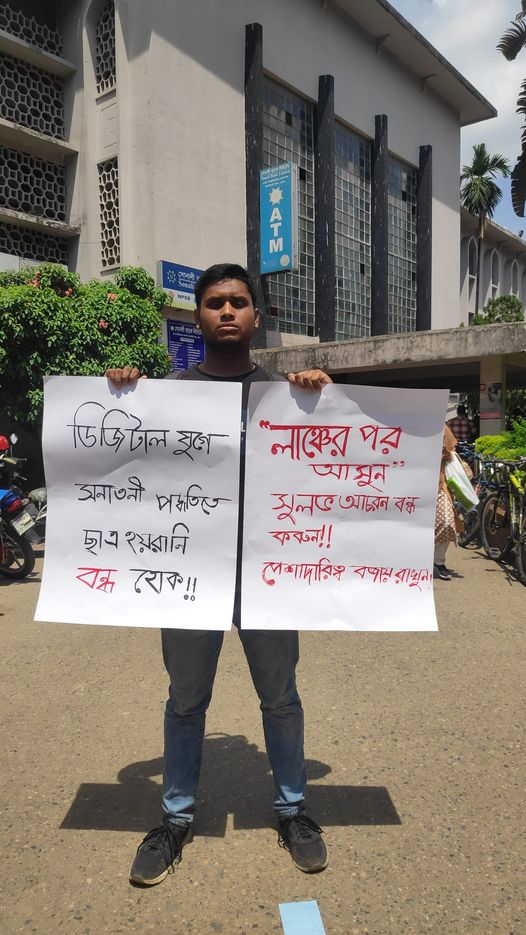 ডিজিটাল যুগে
সনাতনী পদ্ধতিতে
ছাত্র হয়রানি
বন্ধ হোক!!
"লাঞ্চের পর
আসুন"
সুলভ আচরন বন্ধ
করুন!!
পেশাদারিত্ব বজায় রাখুন!
ATM
সোনালী
Sonali
NPSB